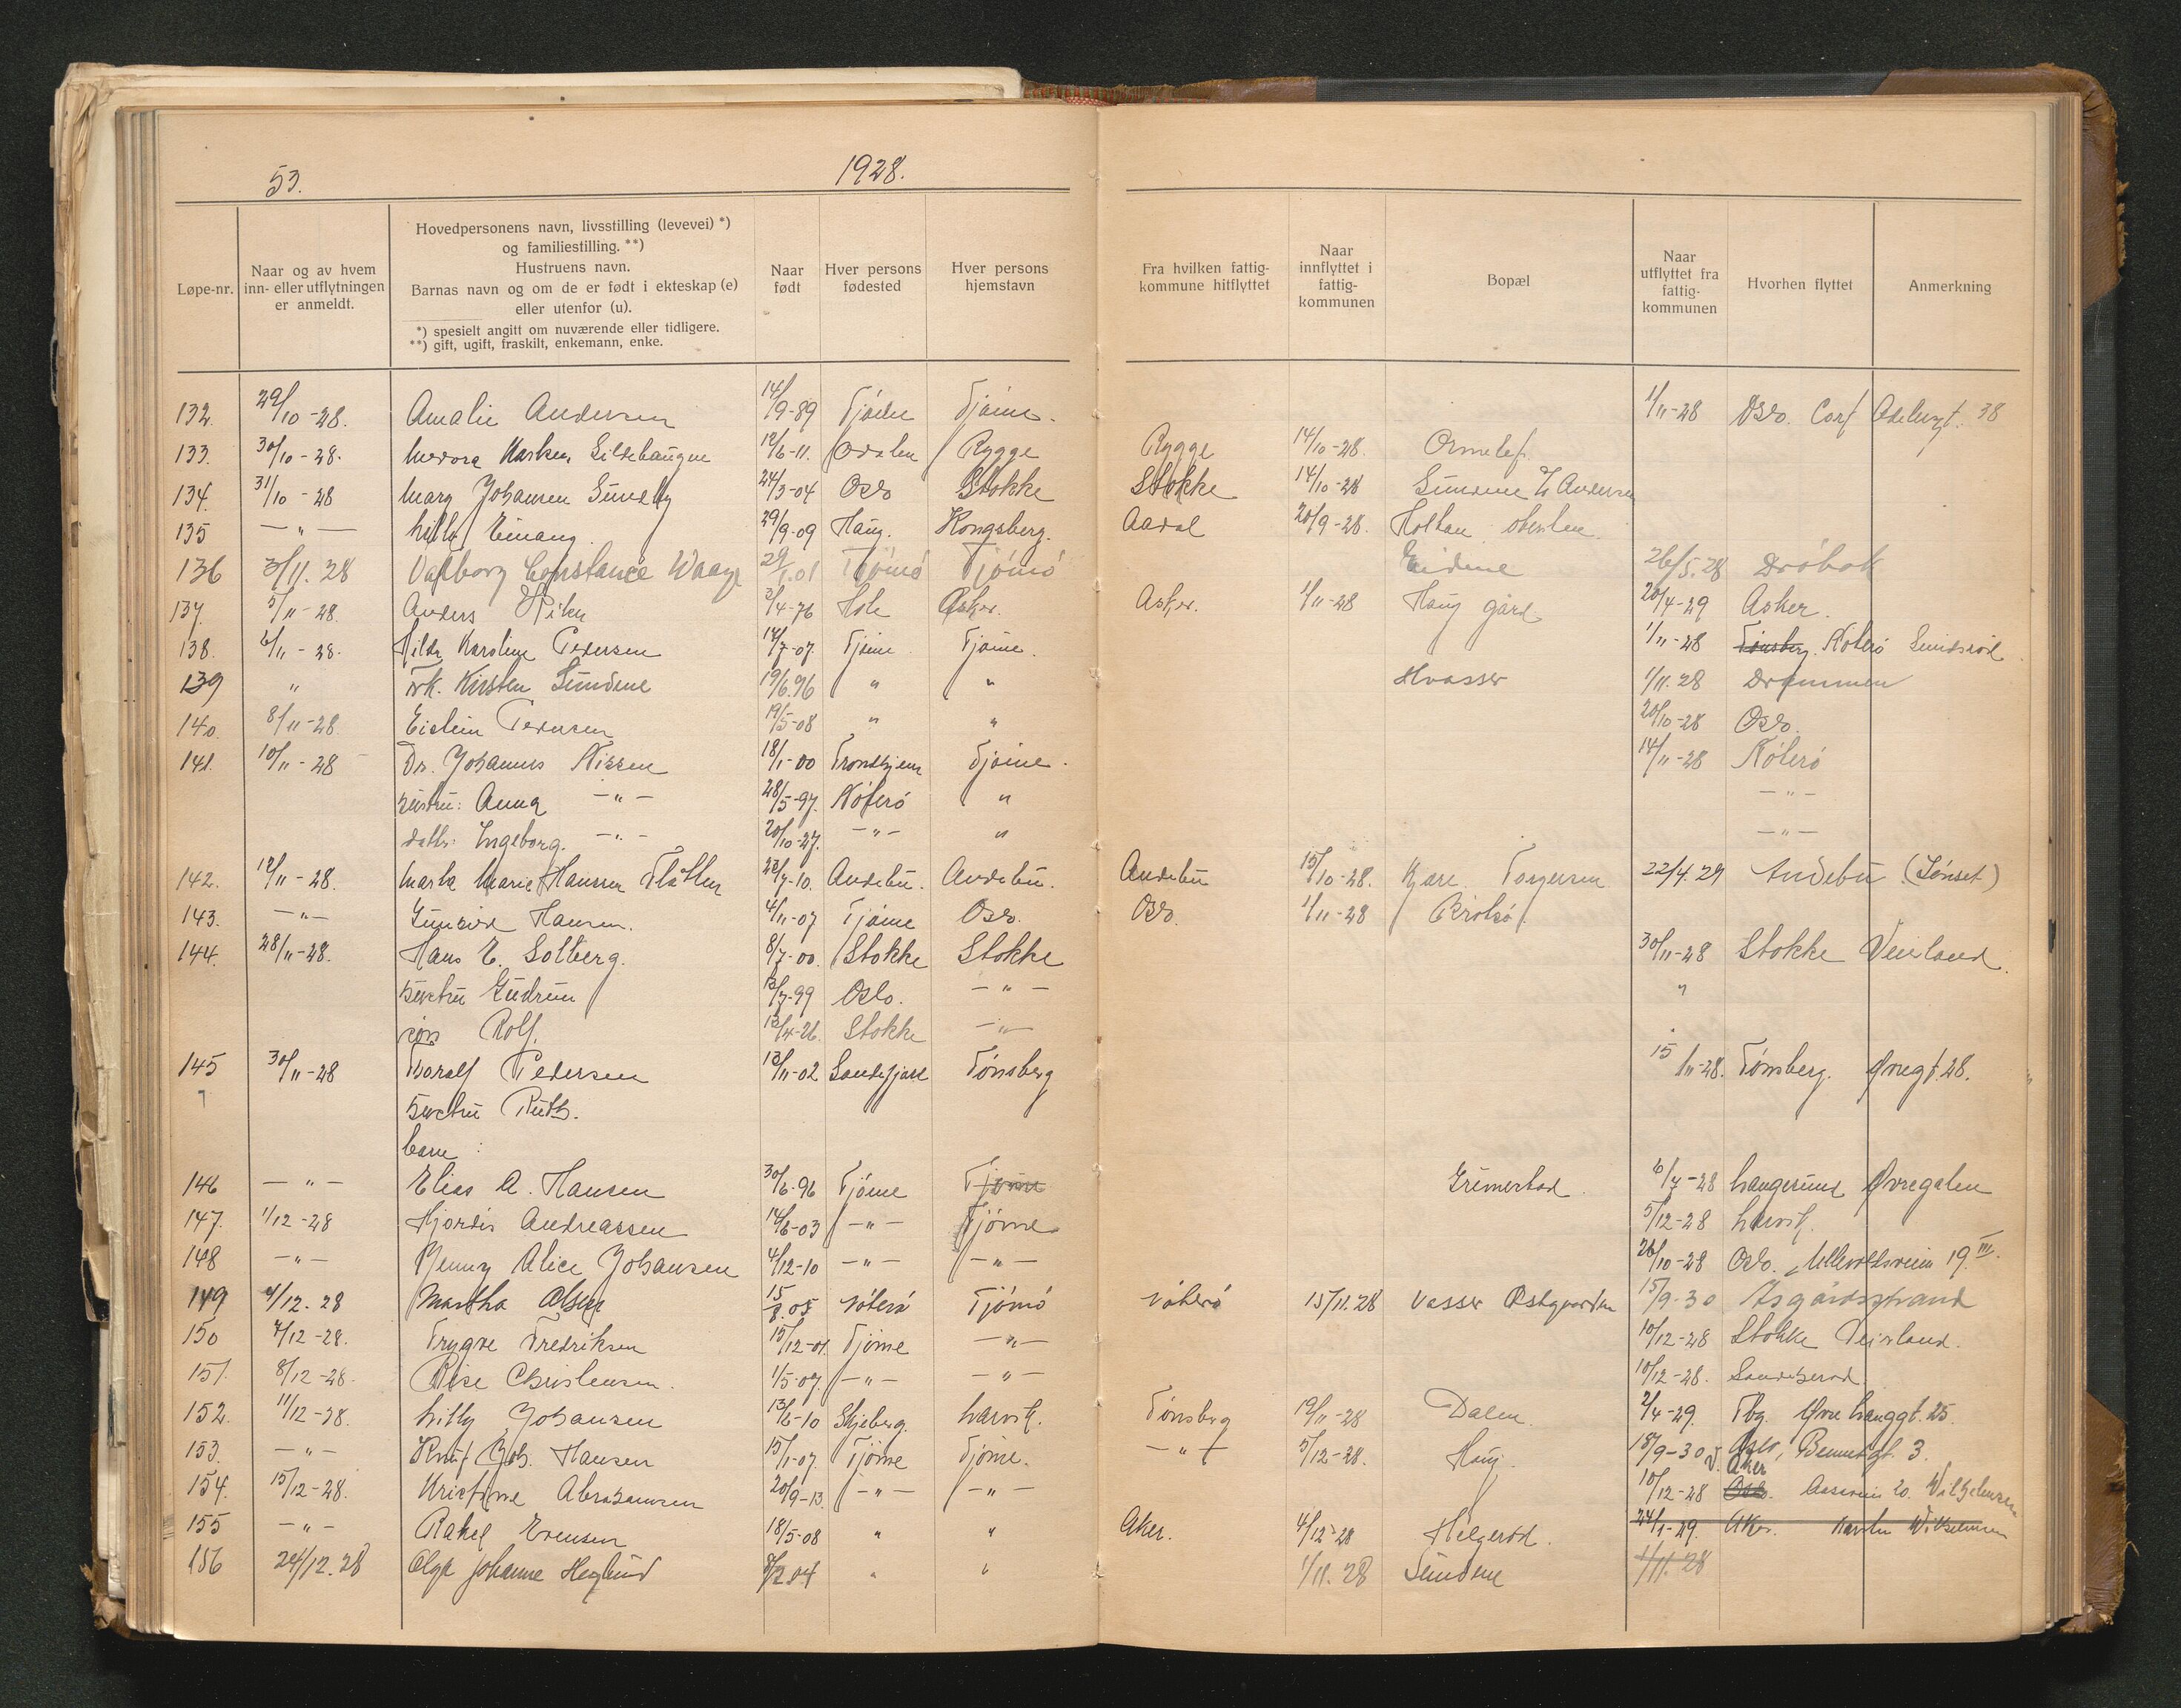 53.
1928.
Løpe-nr. Naar og av hvem inn- eller utflytningen er anmeldt. Hovedpersonens navn, livsstilling (levevei) *) og familiestilling. **) Hustruens navn. Barnas navn og om de er født i ekteskap (e) eller utenfor (u). *) spesielt angitt om nuværende eller tidligere. **) gift, ugift, fraskilt, enkemann, enke. Naar født Hver persons fødested Hver persons hjemstavn Fra hvilken fattig-kommune hitflyttet Naar innflyttet i fattig-kommunen Bopæl Naar utflyttet fra fattig-kommunen Hvorhen flyttet Anmerkning
132. 29/10-28. Amalie Andersen 14/9-89 Tjøme Tjøme. 1/11-28 Oslo. 38
133. 30/10-28. 12/6-11. Odalen Rygge Rygge 14/10-28. Ormelet
134. 31/10-28 Marg Johansen Sundby 24/3-04 Oslo Stokke Stokke 14/10-28 Sundene Andersen
135 —"— Einang. 29/9-09 Haug. Kongsberg. Aadal 20/9-28. Holtan
136 3/11. 28 Valborg Constance Waage 29/1.01 Tjømø Tjømø Eidene 26/5.28 Drøbak
137. 5/11-28. Anders 3/4-76 Hole Asker. Asker. 1/11-28 Haug gård 20/4-29 Asker.
138. 6/11-28. Hilda Karoline Pedersen 14/7-07. Tjøme Tjøme. 1/11-28 Tønsberg. Nøterø Sundsrød
139 " Frk. Kirsten Sundene 19/6.96 " " Hvasser 1/11.28 Drammen
140. 8/11-28. Eistein Pedersen 19/5-08 " " 20/10-28 Oslo.
141. 10/11-28 Dr. Johannes Nissen 18/1-00 Trondhjem Tjøme. 14/11-28 Nøterø
hustru: Anna —"— 28/5-97. Nøterø " —"—
datter: Ingeborg. —"— 20/10-27. —"— " —"—
142. 12/11-28. Marta Marie Hansen Flåtten 23/7-10. Andebu. Andebu. Andebu 15/10-28. Kjære Torgersen 22/4.29 Andebu (Sønset)
143. —"— Hansen. 4/11-07 Tjøme Oslo. Oslo. 1/11-28
144. 28/11-28. Hans E. Solberg. 8/7-00. Stokke Stokke 30/11-28 Stokke Veierland.
hustru Gudrun 12/7-99 Oslo. —"— "
søn Rolf. 12/4-26. Stokke —"—
145 30/11-28 Toralf Pedersen 13/11-02 Sandefjord Tønsberg 15/11-28. Tønsberg. Øvregt. 28.
hustru Ruth.
barn:
146 —"— Elias A. Hansen 30/6-96 Tjøme Tjøme Grimestad. 6/7-28 Langesund Øvregaten
147. 1/12-28 Hjordis Andreassen 14/6-03 —"— Tjøme 5/12-28 Larvik.
148 —"— Jenny Alice Johansen 4/12-10 —"— —"— 26/10-28 Oslo. Ullevoldsveien 19 III.
149 4/12. 28 Martha Olsen 15/8.05 Nøterø Tjømø Nøterø 15/11.28 Vasser Østgaarden 15/9-30 Åsgårdstrand
150 7/12-28. Trygve Fredriksen 15/12-01. Tjøme —"— 10/12-28 Stokke Veierland.
151. 8/12-28. Christensen. 1/5-07. —"— —"— 10/12-28.
152. 11/12-28. Lilly Johansen 13/6-10 Skjeberg. Larvik. Tønsberg 19/11-28 Dalen. 2/4-29. Tbg. Øvre Langgt. 25.
153. —"— Knut Joh. Hansen 15/1-07. Tjøme Tjøme. —"— 5/12-28. Haug. 18/9-30 Oslo, Bennetgt. 3.
154. 15/12-28. Kristine Abrahamsen 20/9-13. —"— —"— 10/12-28 Oslo. Aker 20. Wilhelmsen
155 —"— Rakel Evensen 18/5-08 " " Aker. 4/12-28 Helgerød. 24/1-29. Aker. Wilhelmsen
156 24/12.28 Olga Johanne Heglund 8/2.04 " " 1/11.28 Sundene 1/11.28